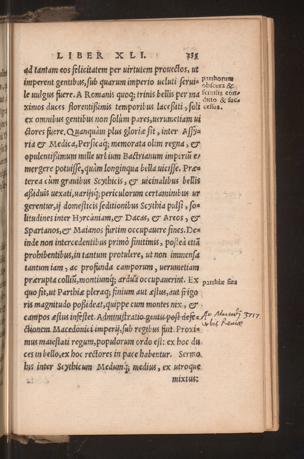 LIBER XLI. 
ad tantam eos felicitatem per virtutem prouectos, ut
imperent gentibus, sub quarum imperio ueluti serui-
le uulgus fuere. A Romanis quoq; trinis bellis per ma
ximos duces florentissimis temporibus lacessiti, soli
ex omnibus gentibus non solùm pares, uerumetiam ui
ctores fuere. Quanquàm plus gloriæ sit, inter Assy-
ria & Medica, Persicaq; memorata olim regna, &
opulentissimum mille urbium Bactrianum imperiũ e-
mergere potuisse, quàm longinqua bella uicisse. Præ-
terea cùm grauibus Scythicis, & uicinalibus bellis
assiduè uexati, uarijsq; periculorum certaminibus ur-
gerentur, ij domesticis seditionibus Scythia pulsi, so-
litudines inter Hyrcaniam, & Dacas, & Areos, &
Spartanos, & Maianos furtim occupauere fines. De-
inde non intercedentibus primò finitimis, posteà etiã
prohibentibus, in tantum protulere, ut non immensa
tantum iam, ac profunda camporum, uerumetiam
prærupta collium, montiumq; ardua occupauerint. Ex
quo fit, ut Parthiæ pleraq; finium aut æstus, aut frigo
ris magnitudo possideat, quippe cum montes nix, &
campos æstus infestet. Administratio gentis post defe-
ctionem Macedonici imperij, sub regibus fuit. Proxi-
mus maiestati regum, populorum ordo est: ex hoc du
ces in bello, ex hoc rectores in pace habentur. Sermo
his inter Scythicum Medumq; medius, ex utroque
mixtus:
parthorum
obscura &
seruilis con-
ditio & suc-
cessus.
parthiæ situs